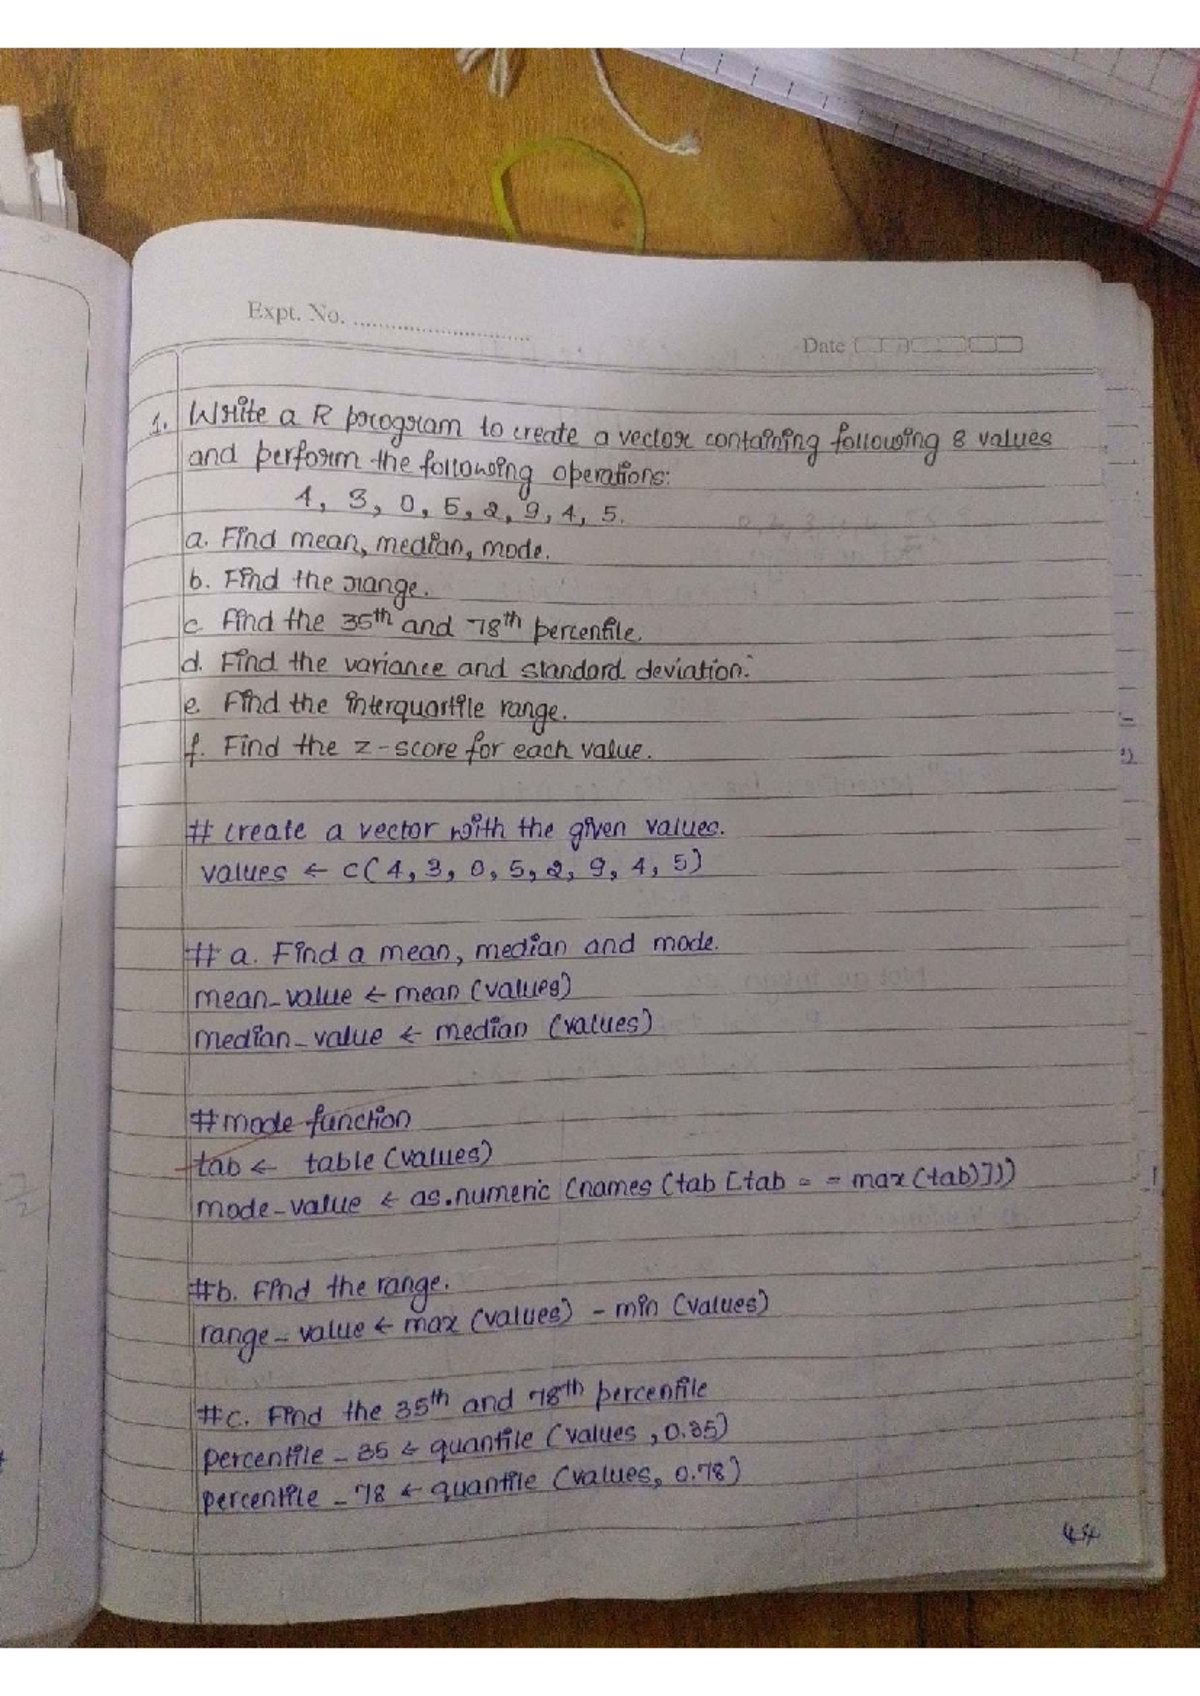 Expt. No. ..............................
Date
1. Write a R program to create a vector containing following 8 values
and perform the following operations:
4, 3, 0, 5, 2, 9, 4, 5.
a. Find mean, median, mode.
b. Find the range.
c. Find the 35th and 78th percentile.
d. Find the variance and standard deviation.
e. Find the interquartile range.
f. Find the z-score for each value.
# create a vector with the given values.
values ← c(4, 3, 0, 5, 2, 9, 4, 5)
# a. Find a mean, median and mode.
mean_value ← mean (values)
median_value ← median (values)
# mode function
tab ← table (values)
mode_value ← as.numeric (names (tab [tab = = max (tab)]))
#b. Find the range.
range_value ← max (values) - min (values)
#c. Find the 35th and 78th percentile
percentile_35 ← quantile (values, 0.35)
percentile_78 ← quantile (values, 0.78)
44